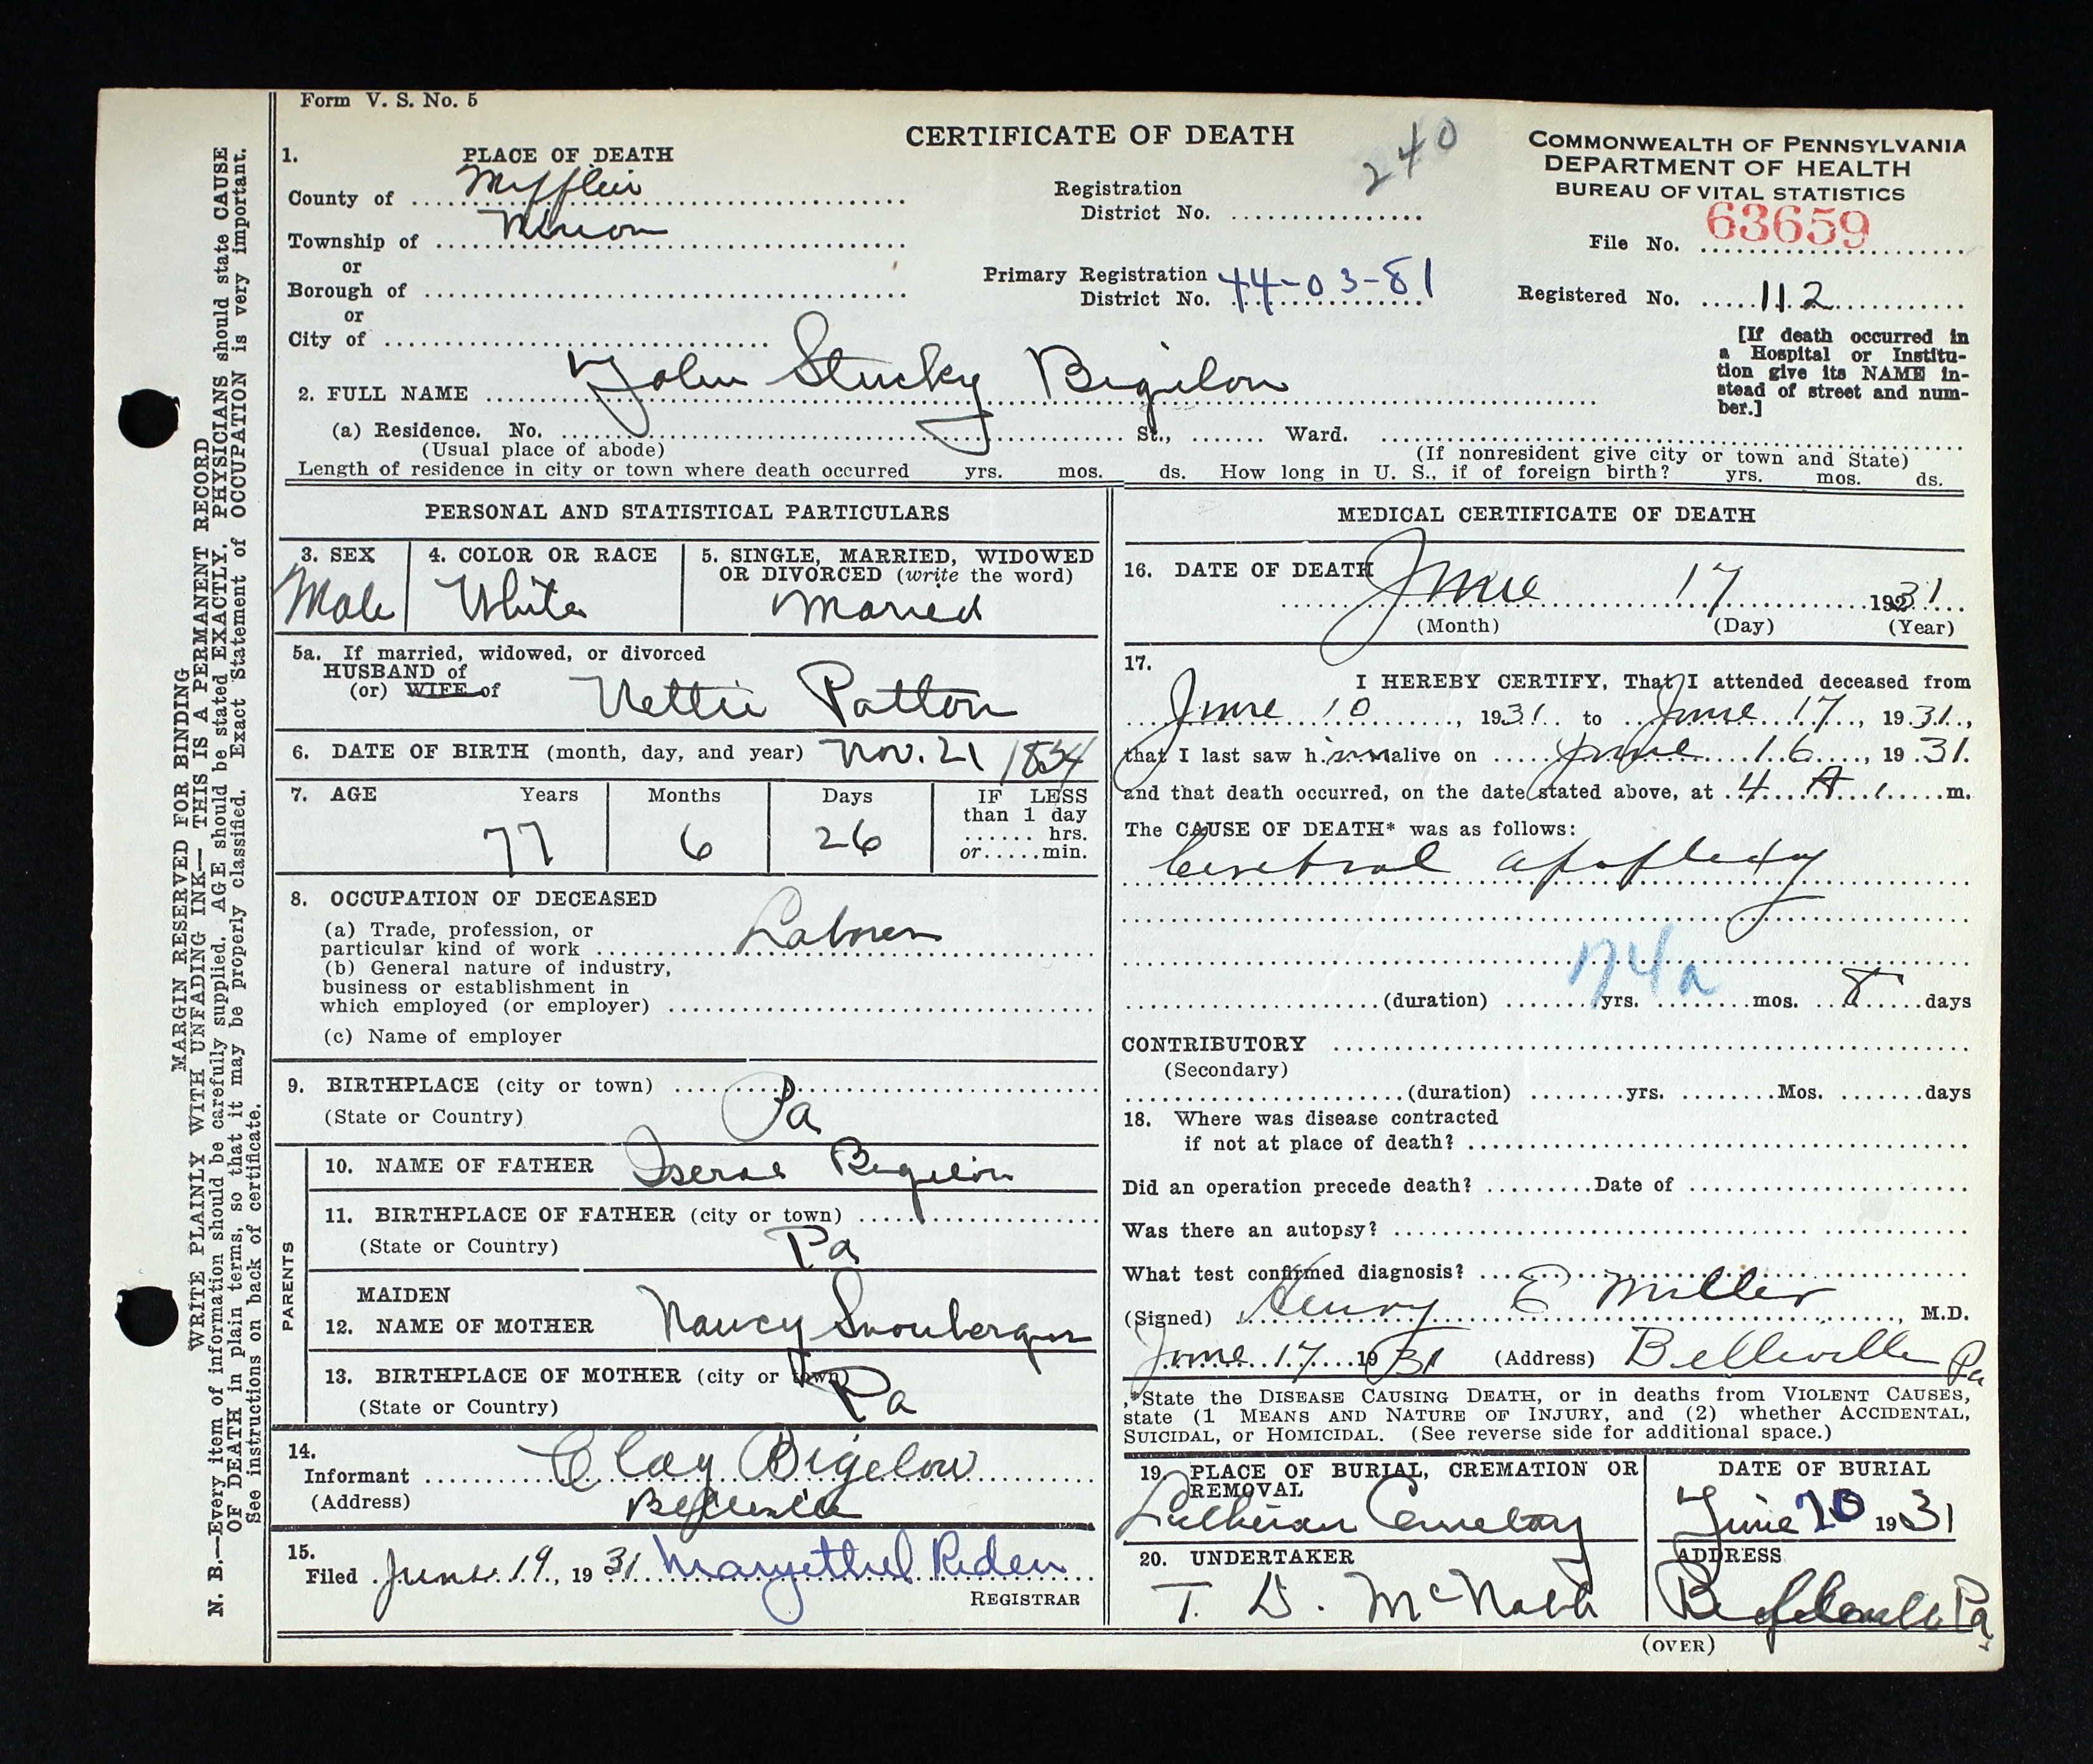 Form V. S. No. 5
CERTIFICATE OF DEATH
240
COMMONWEALTH OF PENNSYLVANIA
DEPARTMENT OF HEALTH
BUREAU OF VITAL STATISTICS
File No. 63659
Registered No. 112
[If death occurred in
a Hospital or Institu-
tion give its NAME in-
stead of street and num-
ber.]
1. PLACE OF DEATH
County of Mifflin
Township of
or
Borough of
or
City of
Registration
District No.
Primary Registration
District No. 44-03-81
2. FULL NAME John Stucky Bigelow
(a) Residence. No. St., Ward.
(Usual place of abode) (If nonresident give city or town and State)
Length of residence in city or town where death occurred yrs. mos. ds. How long in U. S., if of foreign birth? yrs. mos. ds.
PERSONAL AND STATISTICAL PARTICULARS
3. SEX
Male
4. COLOR OR RACE
White
5. SINGLE, MARRIED, WIDOWED
OR DIVORCED (write the word)
Married
5a. If married, widowed, or divorced
HUSBAND of
(or) WIFE of Nettie Patton
6. DATE OF BIRTH (month, day, and year) Nov. 21
7. AGE Years Months Days IF LESS
than 1 day
hrs.
or min.
77 6 26
8. OCCUPATION OF DECEASED
(a) Trade, profession, or
particular kind of work Laborer
(b) General nature of industry,
business or establishment in
which employed (or employer)
(c) Name of employer
9. BIRTHPLACE (city or town)
(State or Country) Pa
PARENTS
10. NAME OF FATHER Iseral Bigelow
11. BIRTHPLACE OF FATHER (city or town)
(State or Country) Pa
MAIDEN
12. NAME OF MOTHER Nancy
13. BIRTHPLACE OF MOTHER (city or town)
(State or Country) Pa
14.
Informant Clay Bigelow
(Address) Belleville
15.
Filed June 19, 1931 Maryethel Riden
REGISTRAR
MEDICAL CERTIFICATE OF DEATH
16. DATE OF DEATH
June 17 1931
(Month) (Day) (Year)
17.
I HEREBY CERTIFY, That I attended deceased from
June 10, 1931 to June 17, 1931,
that I last saw him alive on June 16, 1931.
and that death occurred, on the date stated above, at 4 A. m.
The CAUSE OF DEATH* was as follows:
Cerebral apoplexy
74a
(duration) yrs. mos. 8 days
CONTRIBUTORY
(Secondary)
(duration) yrs. Mos. days
18. Where was disease contracted
if not at place of death?
Did an operation precede death? Date of
Was there an autopsy?
What test confirmed diagnosis?
(Signed) Henry E Miller, M.D.
June 17 1931 (Address) Belleville Pa
*State the DISEASE CAUSING DEATH, or in deaths from VIOLENT CAUSES,
state (1 MEANS AND NATURE OF INJURY, and (2) whether ACCIDENTAL,
SUICIDAL, or HOMICIDAL. (See reverse side for additional space.)
19. PLACE OF BURIAL, CREMATION OR
REMOVAL
Lutheran Cemetary
DATE OF BURIAL
June 20 1931
20. UNDERTAKER
T. D. McNabb
ADDRESS
Belleville Pa.
(OVER)
MARGIN RESERVED FOR BINDING
WRITE PLAINLY WITH UNFADING INK—THIS IS A PERMANENT RECORD
N. B.—Every item of information should be carefully supplied. AGE should be stated EXACTLY. PHYSICIANS should state CAUSE
OF DEATH in plain terms, so that it may be properly classified. Exact Statement of OCCUPATION is very important.
See instructions on back of certificate.